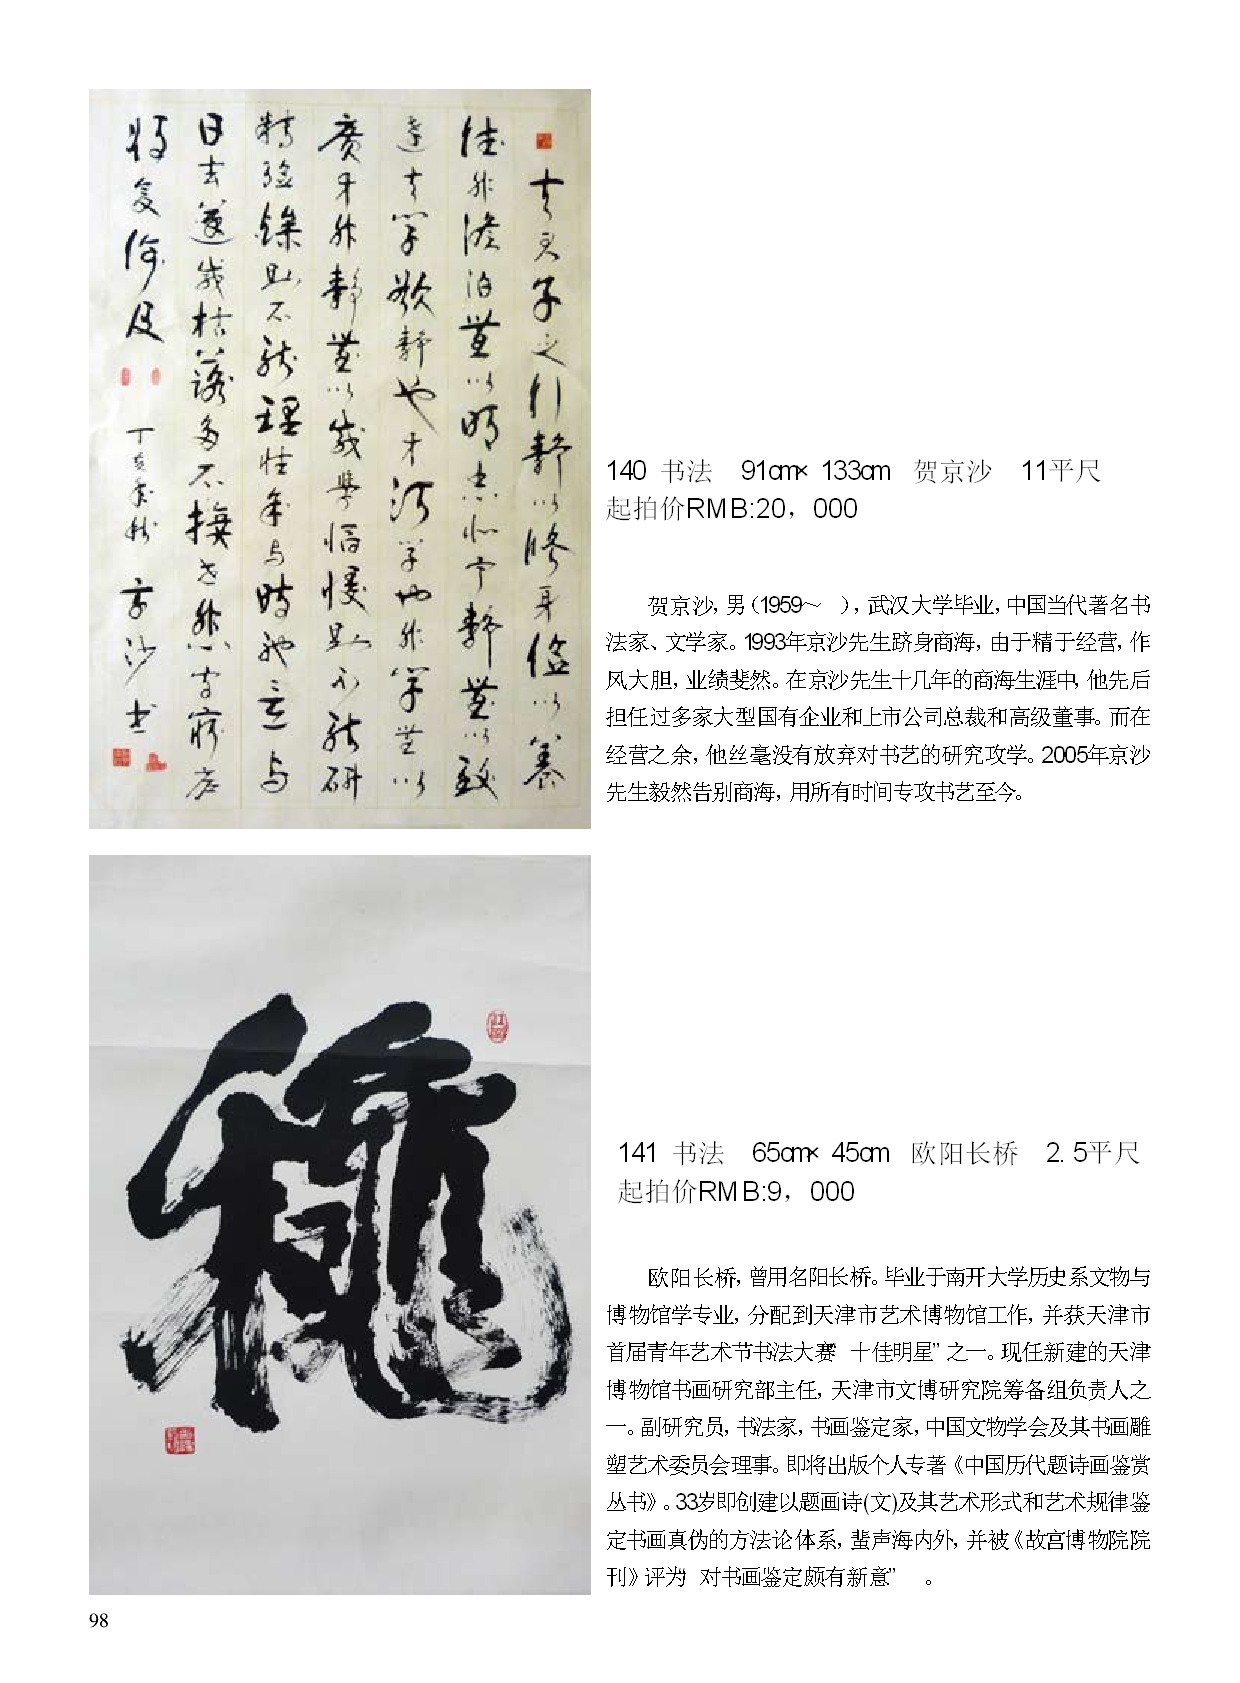 夫君子之行静以修身俭以養
德非澹泊無以明志非宁静無以致
遠夫学欲静也才须学也非学無以
廣才非静無以成學慆慢則不能研
精险躁則不能理性年与時馳意与
日去遂成枯落多不接世悲守窮庐
将复何及
丁亥年秋 京沙书
140 书法 91cm×133cm 贺京沙 11平尺
起拍价RMB:20，000
贺京沙，男（1959～ ），武汉大学毕业，中国当代著名书
法家、文学家。1993年京沙先生跻身商海，由于精于经营，作
风大胆，业绩斐然。在京沙先生十几年的商海生涯中，他先后
担任过多家大型国有企业和上市公司总裁和高级董事。而在
经营之余，他丝毫没有放弃对书艺的研究攻学。2005年京沙
先生毅然告别商海，用所有时间专攻书艺至今。
141 书法 65cm×45cm 欧阳长桥 2.5平尺
起拍价RMB:9，000
欧阳长桥，曾用名阳长桥。毕业于南开大学历史系文物与
博物馆学专业，分配到天津市艺术博物馆工作，并获天津市
首届青年艺术节书法大赛 十佳明星”之一。现任新建的天津
博物馆书画研究部主任，天津市文博研究院筹备组负责人之
一。副研究员，书法家，书画鉴定家，中国文物学会及其书画雕
塑艺术委员会理事。即将出版个人专著《中国历代题诗画鉴赏
丛书》。33岁即创建以题画诗(文)及其艺术形式和艺术规律鉴
定书画真伪的方法论体系，蜚声海内外，并被《故宫博物院院
刊》评为 对书画鉴定颇有新意” 。
98